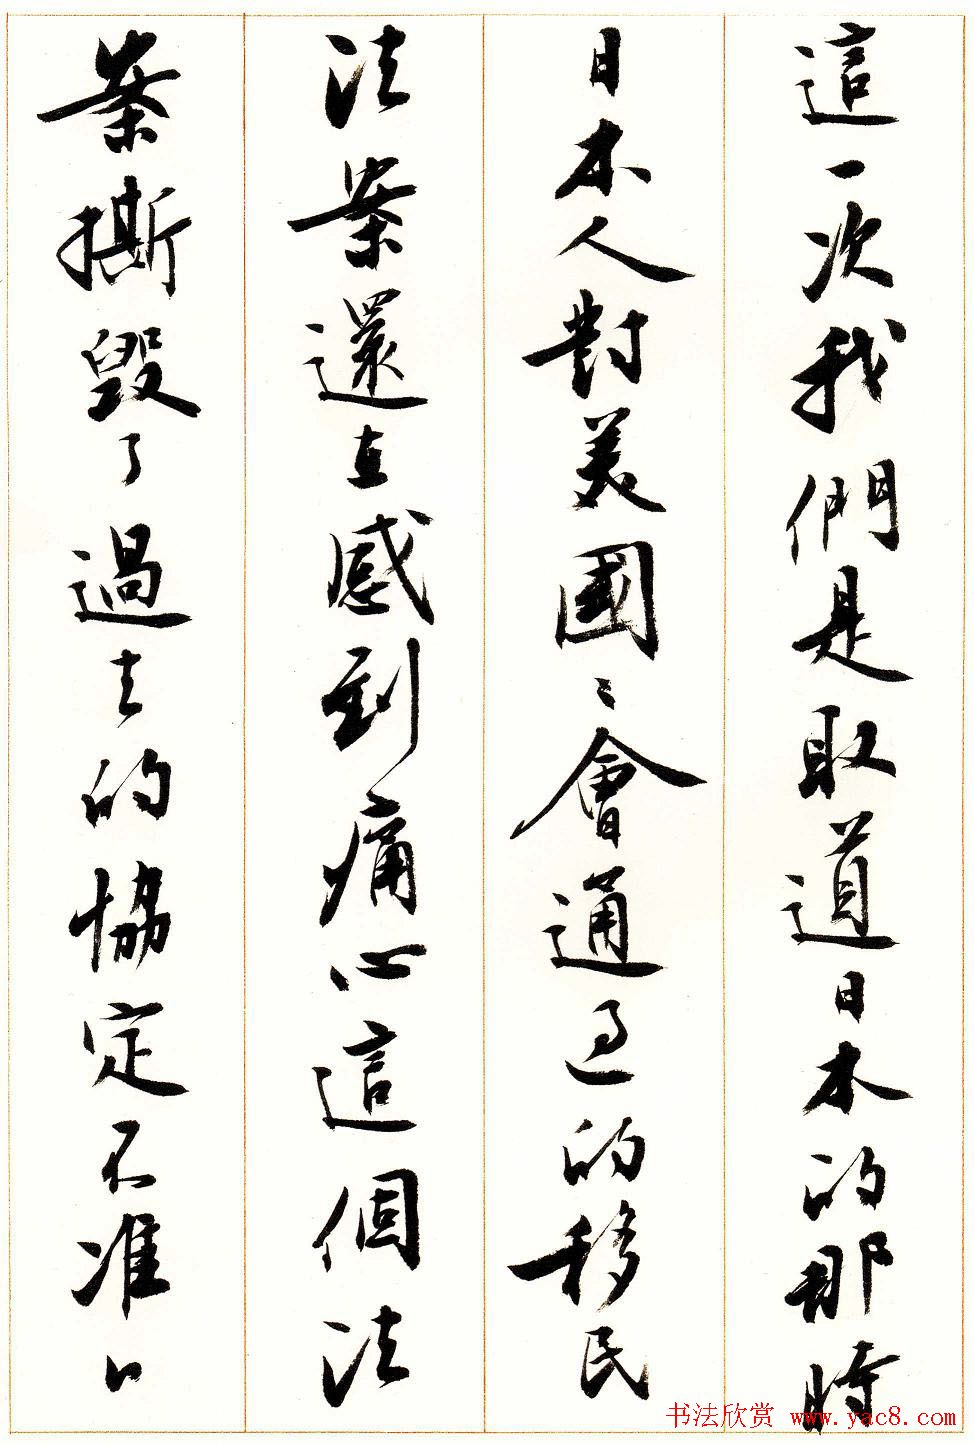 這一次我們是取道日本的那時
日本人對美國〻會通過的移民
法案還在感到痛心這個法
案撕毀了過去的協定不准
书法欣赏 www.yac8.com